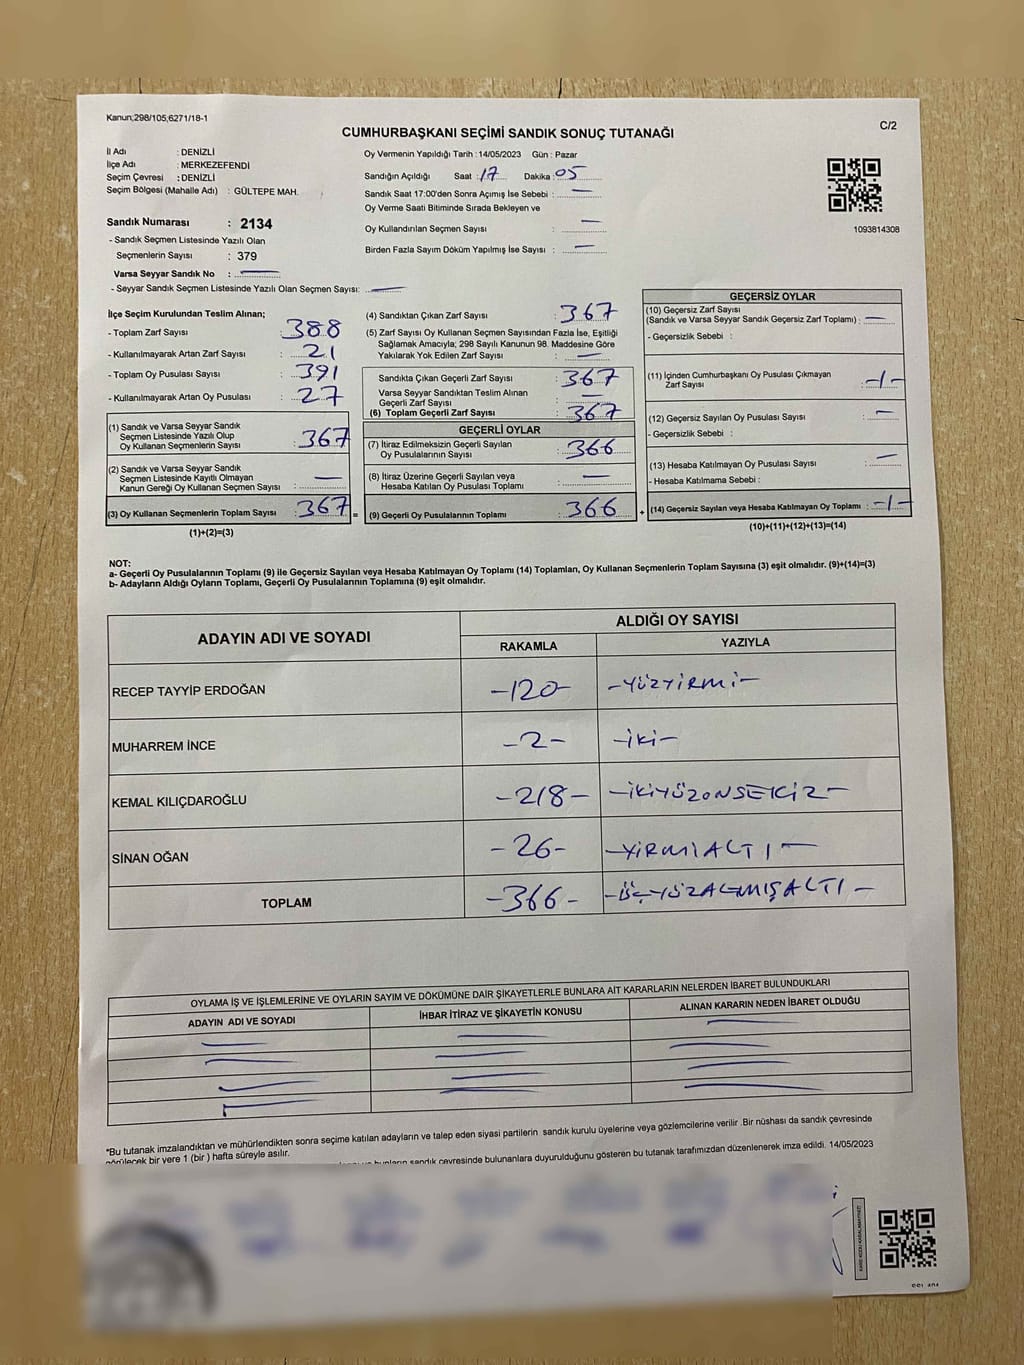 Kanun;298/105;6271/18-1
C/2
CUMHURBAŞKANI SEÇİMİ SANDIK SONUÇ TUTANAĞI
İl Adı : DENİZLİ
İlçe Adı : MERKEZEFENDİ
Seçim Çevresi : DENİZLİ
Seçim Bölgesi (Mahalle Adı) : GÜLTEPE MAH.
Oy Vermenin Yapıldığı Tarih : 14/05/2023 Gün : Pazar
Sandığın Açıldığı Saat : 17 Dakika : 05
Sandık Saat 17:00'den Sonra Açımış İse Sebebi : —
Oy Verme Saati Bitiminde Sırada Bekleyen ve
Oy Kullandırılan Seçmen Sayısı : —
Birden Fazla Sayım Döküm Yapılmış İse Sayısı : —
1093814308
Sandık Numarası : 2134
- Sandık Seçmen Listesinde Yazılı Olan
Seçmenlerin Sayısı : 379
Varsa Seyyar Sandık No : —
- Seyyar Sandık Seçmen Listesinde Yazılı Olan Seçmen Sayısı: —
İlçe Seçim Kurulundan Teslim Alınan;
- Toplam Zarf Sayısı : 388
- Kullanılmayarak Artan Zarf Sayısı : 21
- Toplam Oy Pusulası Sayısı : 391
- Kullanılmayarak Artan Oy Pusulası : 27
(1) Sandık ve Varsa Seyyar Sandık
Seçmen Listesinde Yazılı Olup
Oy Kullanan Seçmenlerin Sayısı : 367
(2) Sandık ve Varsa Seyyar Sandık
Seçmen Listesinde Kayıtlı Olmayan
Kanun Gereği Oy Kullanan Seçmen Sayısı : —
(3) Oy Kullanan Seçmenlerin Toplam Sayısı : 367 =
(1)+(2)=(3)
(4) Sandıktan Çıkan Zarf Sayısı : 367
(5) Zarf Sayısı Oy Kullanan Seçmen Sayısından Fazla İse, Eşitliği
Sağlamak Amacıyla; 298 Sayılı Kanunun 98. Maddesine Göre
Yakılarak Yok Edilen Zarf Sayısı : —
Sandıkta Çıkan Geçerli Zarf Sayısı : 367
Varsa Seyyar Sandıktan Teslim Alınan
Geçerli Zarf Sayısı : —
(6) Toplam Geçerli Zarf Sayısı : 367
GEÇERLİ OYLAR
(7) İtiraz Edilmeksizin Geçerli Sayılan
Oy Pusulalarının Sayısı : 366
(8) İtiraz Üzerine Geçerli Sayılan veya
Hesaba Katılan Oy Pusulası Toplamı : —
(9) Geçerli Oy Pusulalarının Toplamı : 366 +
GEÇERSİZ OYLAR
(10) Geçersiz Zarf Sayısı
(Sandık ve Varsa Seyyar Sandık Geçersiz Zarf Toplamı) : —
- Geçersizlik Sebebi :
(11) İçinden Cumhurbaşkanı Oy Pusulası Çıkmayan
Zarf Sayısı : -1-
(12) Geçersiz Sayılan Oy Pusulası Sayısı : —
- Geçersizlik Sebebi :
(13) Hesaba Katılmayan Oy Pusulası Sayısı : —
- Hesaba Katılmama Sebebi :
(14) Geçersiz Sayılan veya Hesaba Katılmayan Oy Toplamı : -1-
(10)+(11)+(12)+(13)=(14)
NOT:
a- Geçerli Oy Pusulalarının Toplamı (9) ile Geçersiz Sayılan veya Hesaba Katılmayan Oy Toplamı (14) Toplamları, Oy Kullanan Seçmenlerin Toplam Sayısına (3) eşit olmalıdır. (9)+(14)=(3)
b- Adayların Aldığı Oyların Toplamı, Geçerli Oy Pusulalarının Toplamına (9) eşit olmalıdır.
ADAYIN ADI VE SOYADI
ALDIĞI OY SAYISI
RAKAMLA YAZIYLA
RECEP TAYYİP ERDOĞAN -120- -YÜZYİRMİ-
MUHARREM İNCE -2- -İKİ-
KEMAL KILIÇDAROĞLU -218- -İKİYÜZONSEKİZ-
SİNAN OĞAN -26- -YİRMİALTI-
TOPLAM -366- -ÜÇYÜZALTMIŞALTI-
OYLAMA İŞ VE İŞLEMLERİNE VE OYLARIN SAYIM VE DÖKÜMÜNE DAİR ŞİKAYETLERLE BUNLARA AİT KARARLARIN NELERDEN İBARET BULUNDUKLARI
ADAYIN ADI VE SOYADI İHBAR İTİRAZ VE ŞİKAYETİN KONUSU ALINAN KARARIN NEDEN İBARET OLDUĞU
*Bu tutanak imzalandıktan ve mühürlendikten sonra seçime katılan adayların ve talep eden siyasi partilerin sandık kurulu üyelerine veya gözlemcilerine verilir .Bir nüshası da sandık çevresinde
görülecek bir yere 1 (bir ) hafta süreyle asılır.
bunların sandık çevresinde bulunanlara duyurulduğunu gösteren bu tutanak tarafımızdan düzenlenerek imza edildi. 14/05/2023